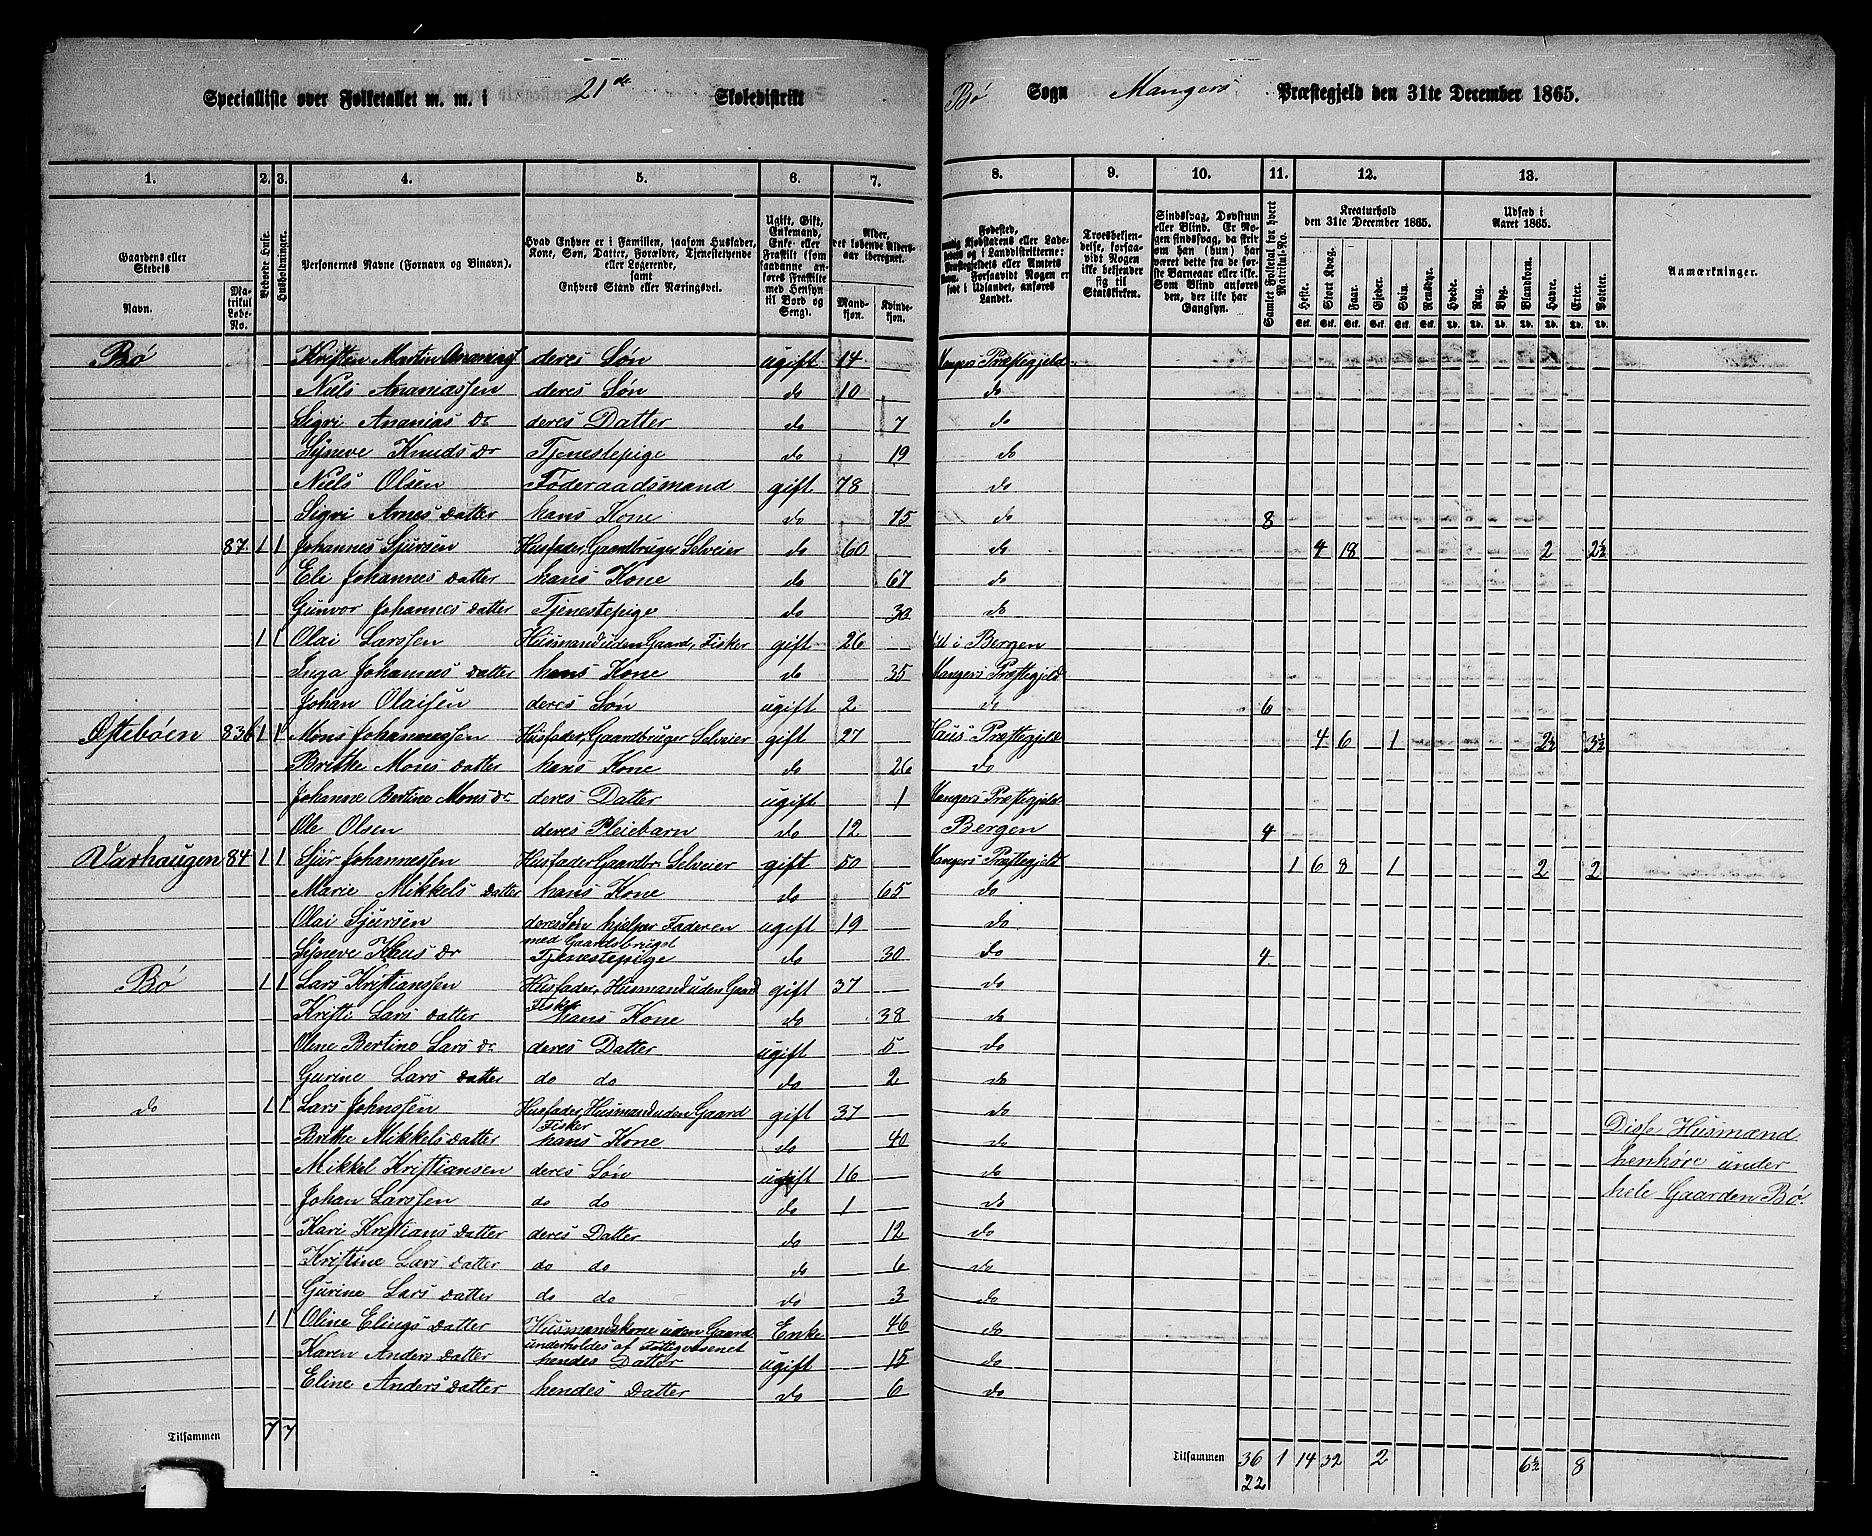 Specialliste over Folketallet m. m. i 21de Skoledistrikt Bö Sogn Mangers Præstegjeld den 31te December 1865.
1. 2. 3. 4. 5. 6. 7. 8. 9. 10. 11. 12. 13.
Gaardens eller Stedets Navn. Matrikul Løbe-No. Beboede Huse. Husholdninger. Personernes Navne (Fornavn og Binavn). Hvad Enhver er i Familien, saasom Husfader, Kone, Søn, Datter, Forældre, Tjenestetyende eller Logerende, samt Enhvers Stand eller Næringsvei. Ugift, Gift, Enkemand, Enke eller Fraskilt (som saadanne anføres Fraskilte med Hensyn til Bord og Seng). Alder, det løbende Aldersaar iberegnet. Mandkjøn. Kvindekjøn.
Fødested, Troesbekjendelse, forsaavidt Nogen ikke bekjender sig til Statskirken. Sindssvag, Døvstum eller Blind. Samlet Folketal for hvert Matrikul-No. Kreaturhold den 31te December 1865. Heste. Stort Kvæg. Faar. Gjeder. Svin. Rensdyr. Udsæd i Aaret 1865. Hvede. Rug. Byg. Blandkorn. Havre. Erter. Poteter. Anmærkninger.
Bö Kristen Martin Ananiass deres Sön ugift 14 Mangers Præstegjeld
Niels Ananiassen deres Sön do 10 do
Sigri Ananias Dr deres Datter do 7 do
Synneve Knuds Dr Tjenestepige do 19 do
Niels Olsen Föderaadsmand gift 78 do
Sigri Arnes Datter hans Kone do 75 do 8
87. 1 1 Johannes Sjursen Husfader, Gaardbruger Selveier do 60 do 4 18 2 2½
Eli Johannes Datter hans Kone do 67 do
Gunvor Johannes Datter Tjenestepige do 30 do
1 1 Olai Larssen Husmand uden Gaard, Fisker gift 26 i Bergen
Inga Johannes Datter hans Kone do 35 Mangers Præstegjeld
Johan Olaisen deres Sön ugift 2 do 6
Östeböen 83b 1 1 Mons Johannessen Husfader, Gaardbruger Selveier gift 27 Haus Præstegjeld 4 6 1 2½ 3½
Brithe Mons Datter hans Kone do 26 do
Johanne Bertine Mons Dr. deres Datter ugift 1 Mangers Præstegjeld
Ole Olsen deres Pleiebarn do 12 Bergen 4
Varhaugen 84 1 1 Sjur Johannessen Husfader Gaardbr. Selveier gift 50 Mangers Præstegjeld 1 6 8 1 2 2
Marie Mikkels Datter hans Kone do 65 do
Olai Sjursen deres Sön hjelper Faderen ugift 19 do
med Gaardsbruget
Synneve Dr Tjenestepige do 30 do 4
Bö 1 1 Lars Kristianssen Husfader, Husmand uden Gaard gift 37 do
Fisker
Kristi Lars Datter hans Kone do 38 do
Oline Bertine Lars Dr. deres Datter ugift 5 do
Gurine Lars Datter do do do 2 do
do 1 1 Lars Johnssen Husfader, Husmand uden Gaard gift 37 do
Fisker
Brithe Mikkels Datter hans Kone do 40 do Disse Husmænd
Mikkel Kristiansen deres Sön ugift 16 do henhöre under
Johan Larssen do do do 1 do hele Gaarden Bö.
Kari Kristians Datter deres Datter do 12 do
Kristine Lars Datter do do do 6 do
Gurine Lars Datter do do do 3 do
1 1 Oline Elings Datter Husmandskone uden Gaard Enke 46 do
underholdes af Fattigvæsenet
Karen Anders Datter hendes Datter ugift 15 do
Eline Anders Datter hendes Datter do 6 do
Tilsammen 7 7 Tilsammen 36 1 14 32 2 6½ 8
22